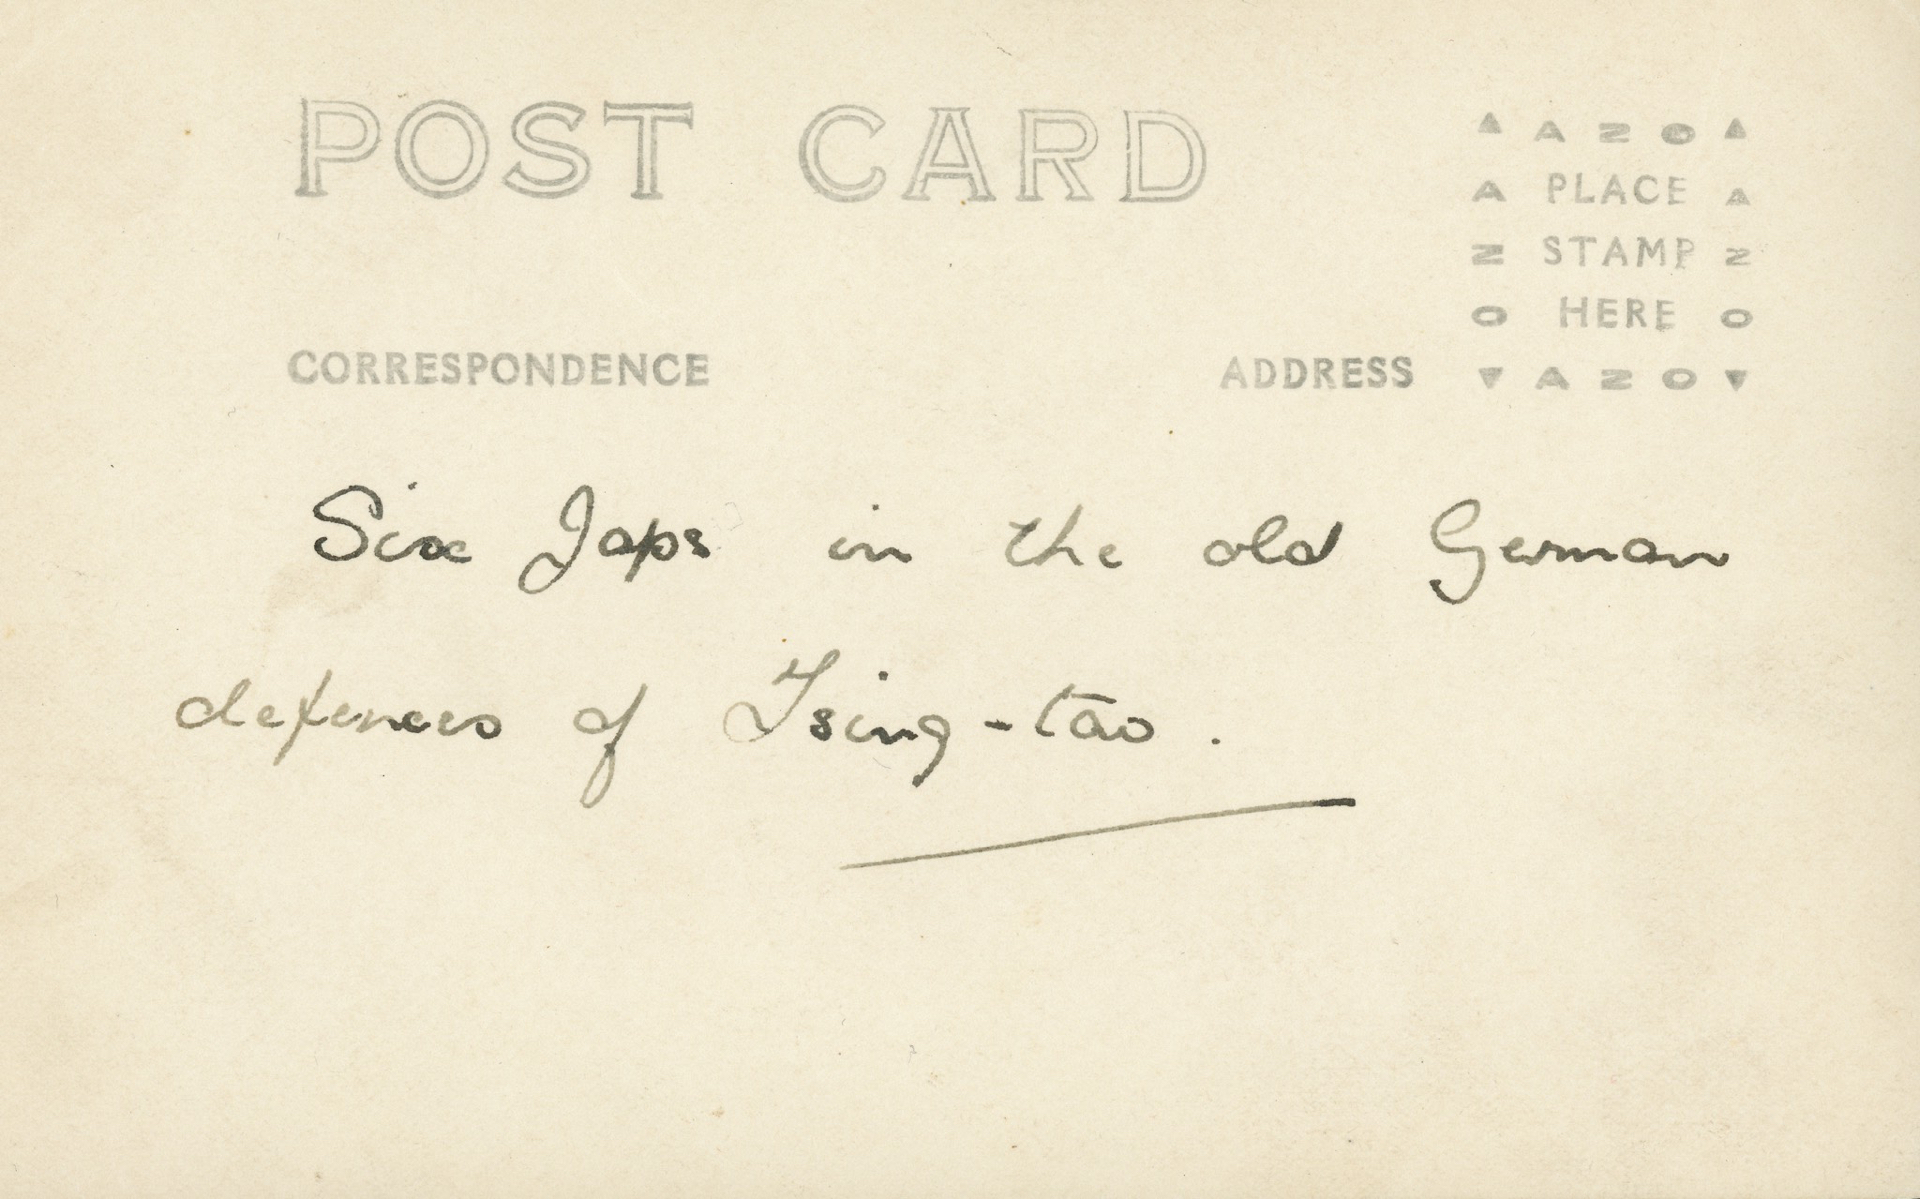 POST CARD
▲ A Z O ▲
A PLACE A
Z STAMP Z
O HERE O
CORRESPONDENCE
ADDRESS
▼ A Z O ▼
Six Japs in the old German
defences of Tsing-tao.